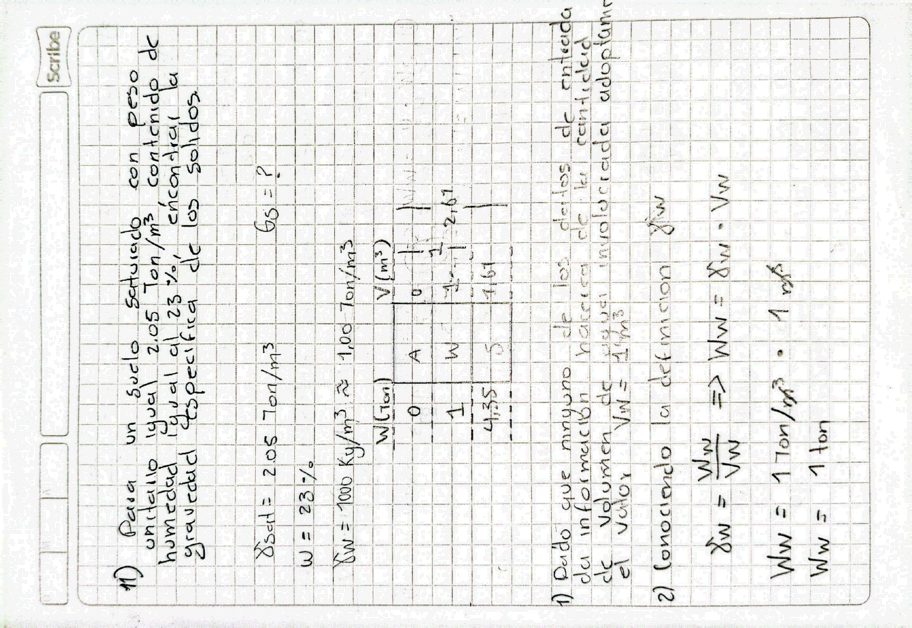 Scribe
11) Para un suelo saturado con peso
unitario igual 2.05 Ton/m³, contenido de
humedad igual al 23 %, encontrar la
gravedad específica de los solidos.
γsat = 2.05 Ton/m³ Gs = ?
W = 23 %
γw = 1000 Kg/m³ ≈ 1,00 Ton/m³
W(Ton) V(m³)
0 A 0
1 W 1 2,61
4,35 S 1,61
1) Dado que ninguno de los datos de entrada
da información hacerca de la cantidad
de volumen de agua involucrada adoptam
el valor Vw = 1 m³
2) Conociendo la definicion γw
γw = Ww/Vw => Ww = γw · Vw
Ww = 1 Ton/m³ · 1 m³
Ww = 1 ton